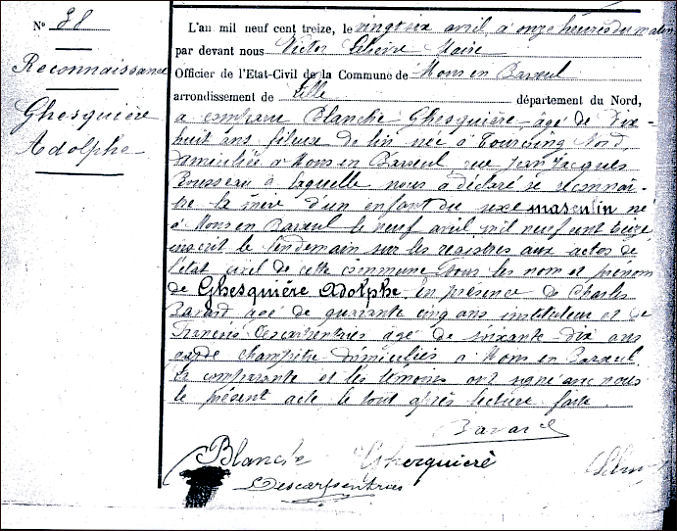 N° 38
Reconnaissance
Ghesquière
Adolphe
L'an mil neuf cent treize, le vingt six avril, à onze heures du matin
par devant nous Victor Maire
Officier de l'Etat-Civil de la Commune de Mons en Barœul
arrondissement de Lille département du Nord,
a comparu Blanche Ghesquière, âgé de dix-
huit ans fileuse de lin née à Tourcoing Nord
domiciliée à Mons en Barœul rue Jean Jacques
Rousseau laquelle nous a déclaré se reconnaî-
tre la mère d'un enfant du sexe masculin né
à Mons en Barœul le neuf avril mil neuf cent treize
inscrit le lendemain sur les registres aux actes de
l'état civil de cette commune sous les nom et prénom
de Ghesquière Adolphe en présence de Charles
Bavard agé de quarante cinq ans instituteur et de
François Descarpentries âgé de soixante-dix ans
garde champêtre domiciliés à Mons en Barœul.
La comparante et les témoins ont signé avec nous
le présent acte le tout après lecture faite.
Bavard
Blanche Ghesquière
Descarpentries